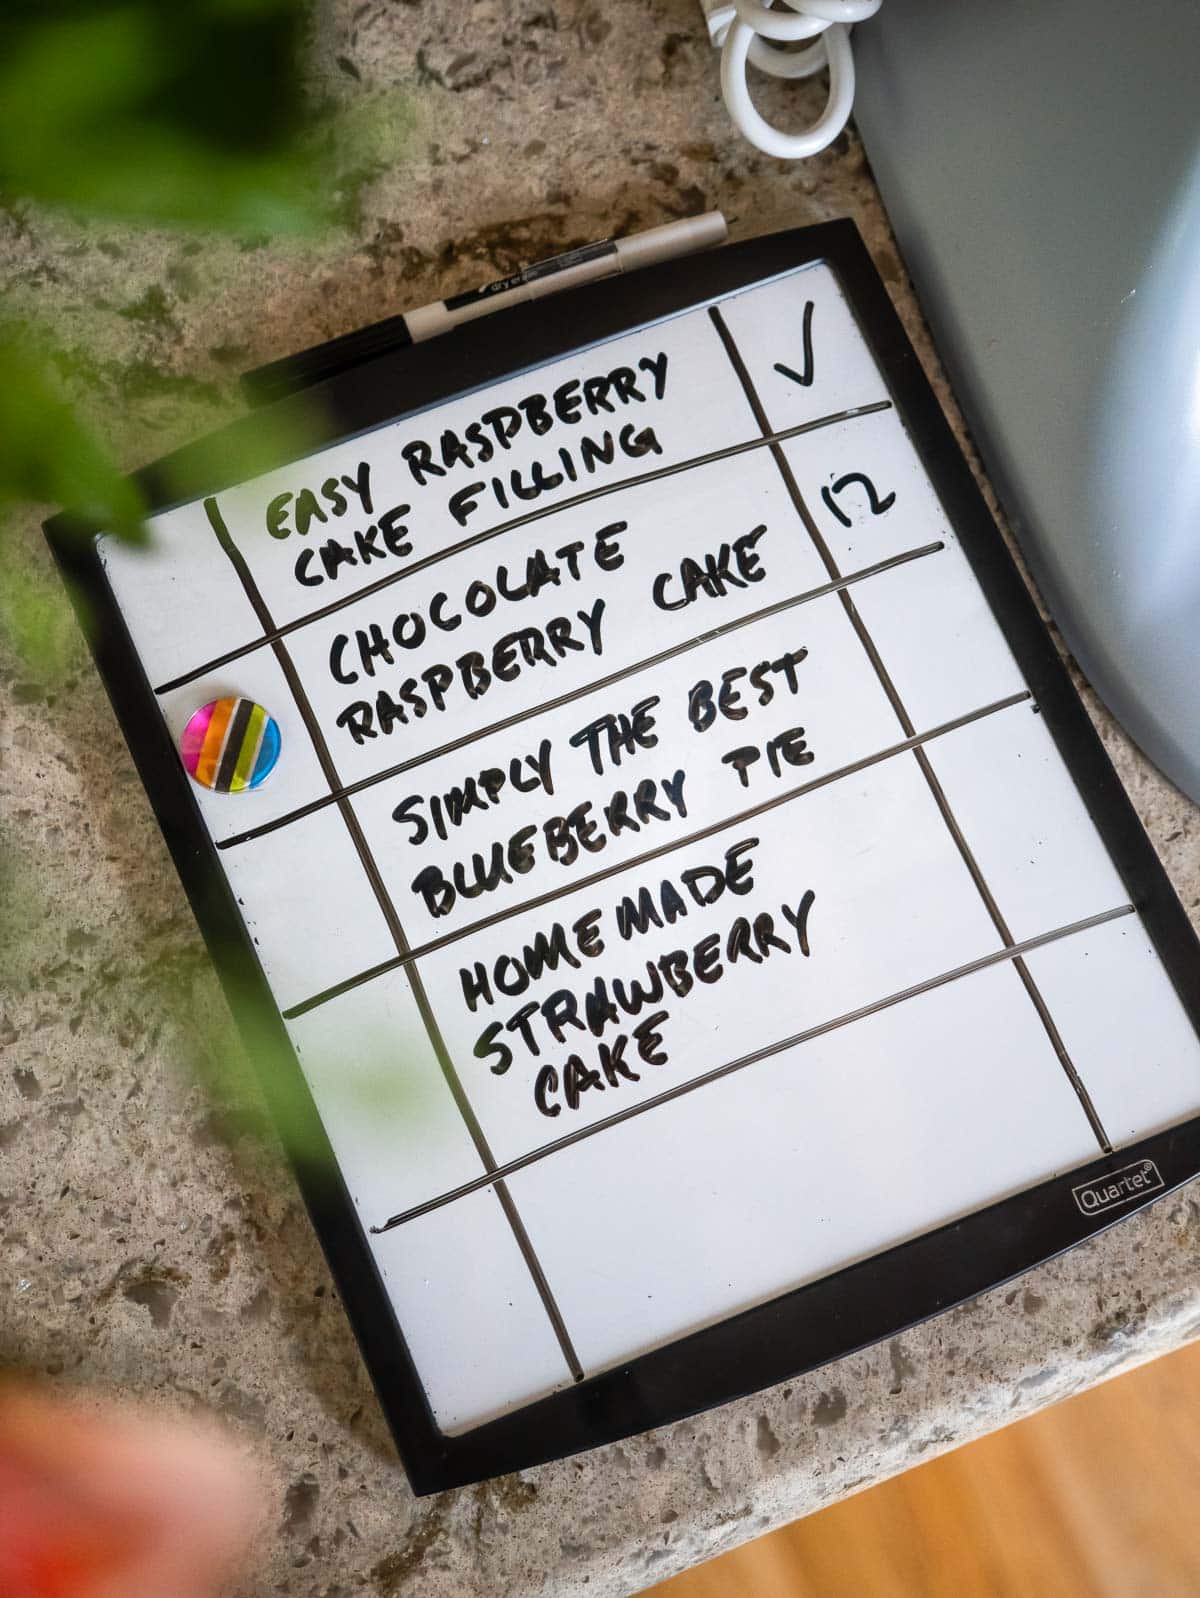 dry erase
EASY RASPBERRY
CAKE FILLING
✓
CHOCOLATE
RASPBERRY CAKE
12
SIMPLY THE BEST
BLUEBERRY PIE
HOMEMADE
STRAWBERRY
CAKE
Quartet®